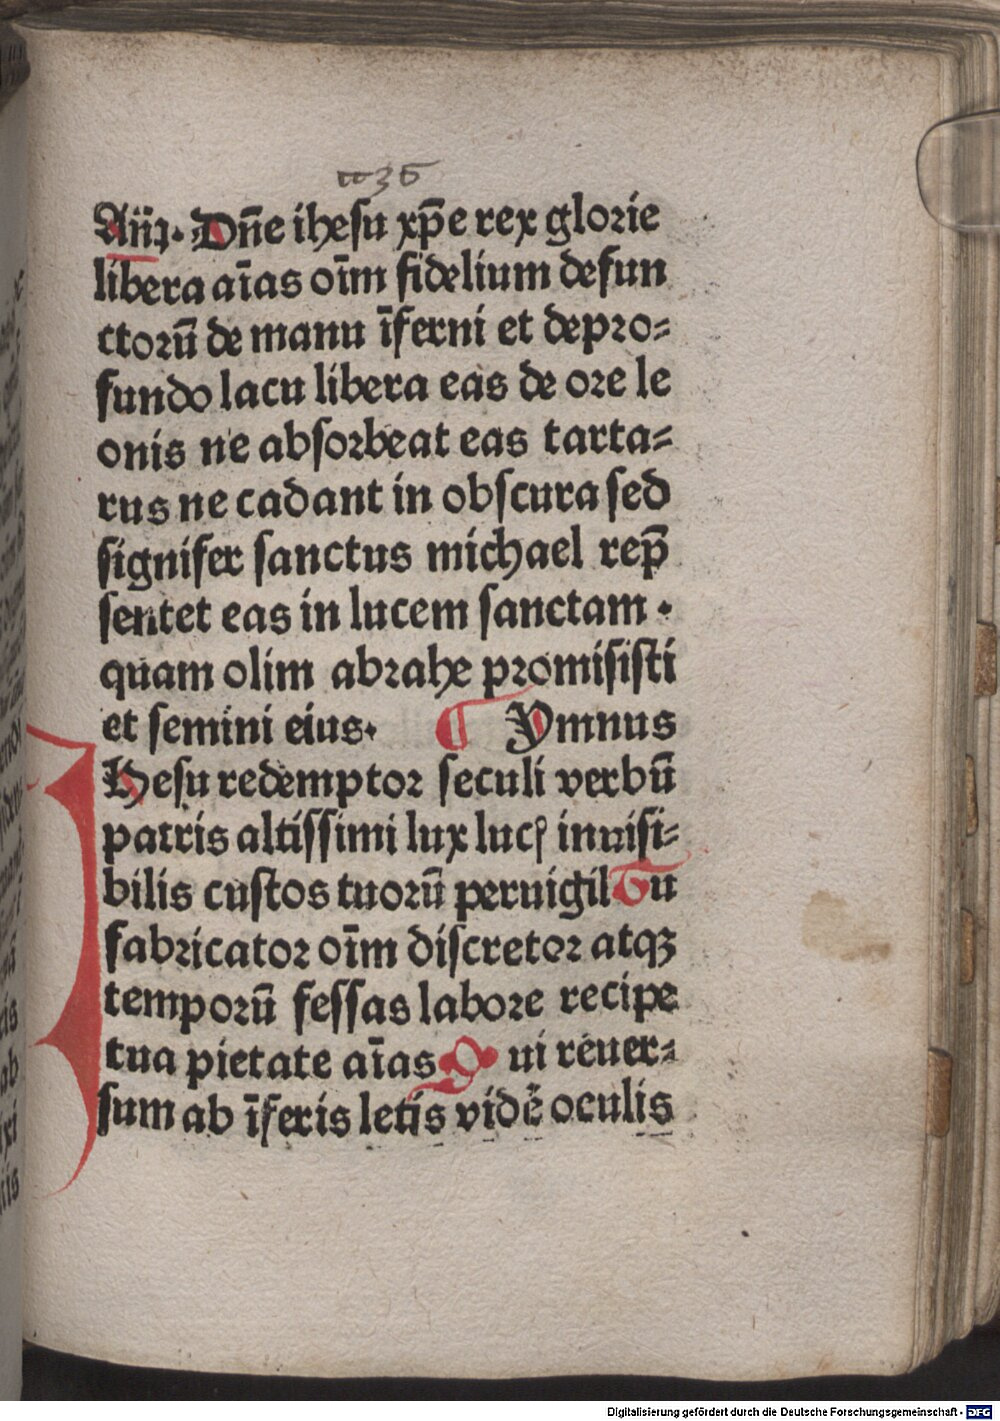 Añ⁊. Dn̄e ihesu xp̄e rex glorie
libera aīas oīm fidelium defun
ctorū de manu īferni et depro⸗
fundo lacu libera eas de ore le
onis ne absorbeat eas tarta⸗
rus ne cadant in obscura sed
signifer sanctus michael rep̄
sentet eas in lucem sanctam .
quam olim abrahe promisisti
et semini eius. ¶ Ymnus
IHesu redemptor seculi verbū
patris altissimi lux lucꝭ inuisi⸗
bilis custos tuorū peruigil Tu
fabricator oīm discretor atqꝫ
temporū fessas labore recipe
tua pietate aīas Qui reuer⸗
sum ab īferis letis vidē oculis
Digitalisierung gefördert durch die Deutsche Forschungsgemeinschaft - DFG